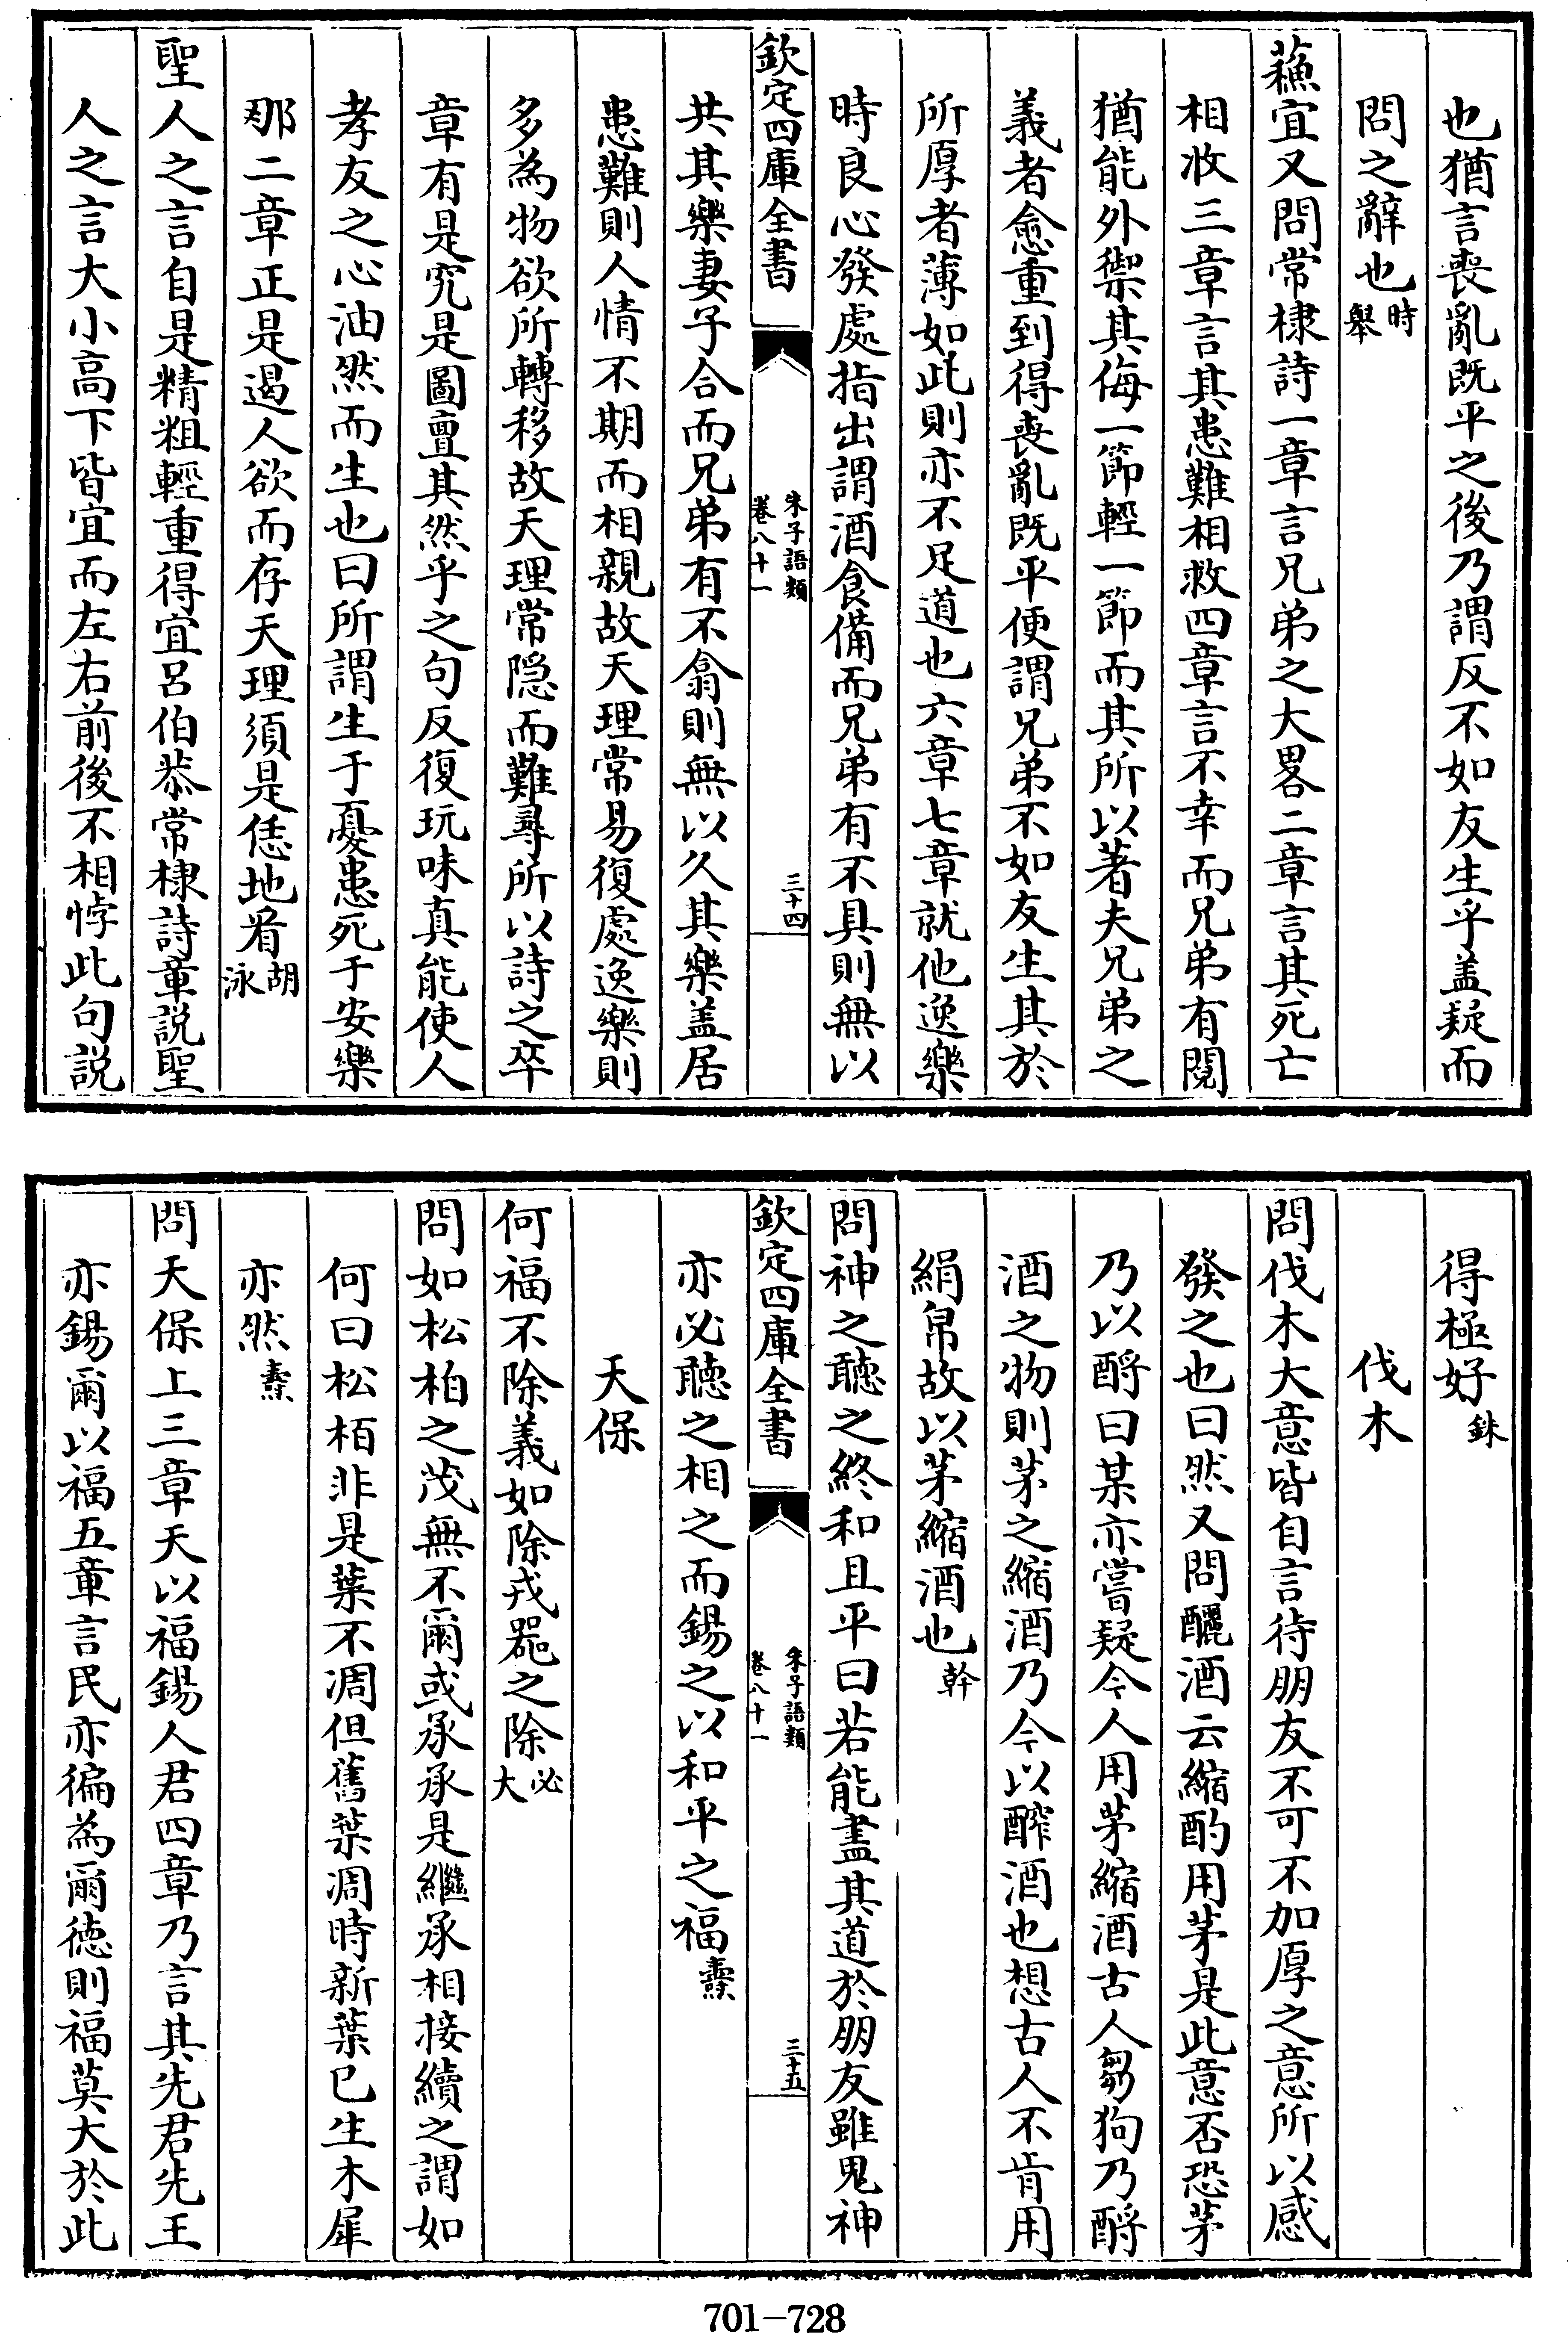 也猶言喪亂既平之後乃謂反不如友生乎盖疑而
問之辭也時舉
蘓宜又問常棣詩一章言兄弟之大畧二章言其死亡
相收三章言其患難相救四章言不幸而兄弟有䦧
猶能外禦其侮一節輕一節而其所以著夫兄弟之
義者愈重到得喪亂既平便謂兄弟不如友生其於
所厚者薄如此則亦不足道也六章七章就他逸樂
時良心發處指出謂酒食備而兄弟有不具則無以
欽定四庫全書
朱子語類
卷八十一
三十四
共其樂妻子合而兄弟有不翕則無以久其樂盖居
患難則人情不期而相親故天理常易復處逸樂則
多為物欲所轉移故天理常隠而難尋所以詩之卒
章有是究是圖亶其然乎之句反復玩味真能使人
孝友之心油然而生也曰所謂生于憂患死于安樂
那二章正是遏人欲而存天理須是恁地看胡泳
聖人之言自是精粗輕重得宜呂伯恭常棣詩章說聖
人之言大小高下皆宜而左右前後不相悖此句説
得極好銖
伐木
問伐木大意皆自言待朋友不可不加厚之意所以感
發之也曰然又問釃酒云縮酌用茅是此意否恐茅
乃以酹曰某亦嘗疑今人用茅縮酒古人芻狗乃酹
酒之物則茅之縮酒乃今以醡酒也想古人不肯用
絹帛故以茅縮酒也榦
問神之聽之終和且平曰若能盡其道於朋友雖鬼神
欽定四庫全書
朱子語類
卷八十一
三十五
亦必聽之相之而錫之以和平之福燾
天保
何福不除義如除戎器之除必大
問如松柏之茂無不爾或承承是繼承相接續之謂如
何曰松栢非是葉不凋但舊葉凋時新葉已生木犀
亦然燾
問天保上三章天以福錫人君四章乃言其先君先王
亦錫爾以福五章言民亦徧為爾德則福莫大於此
701-728